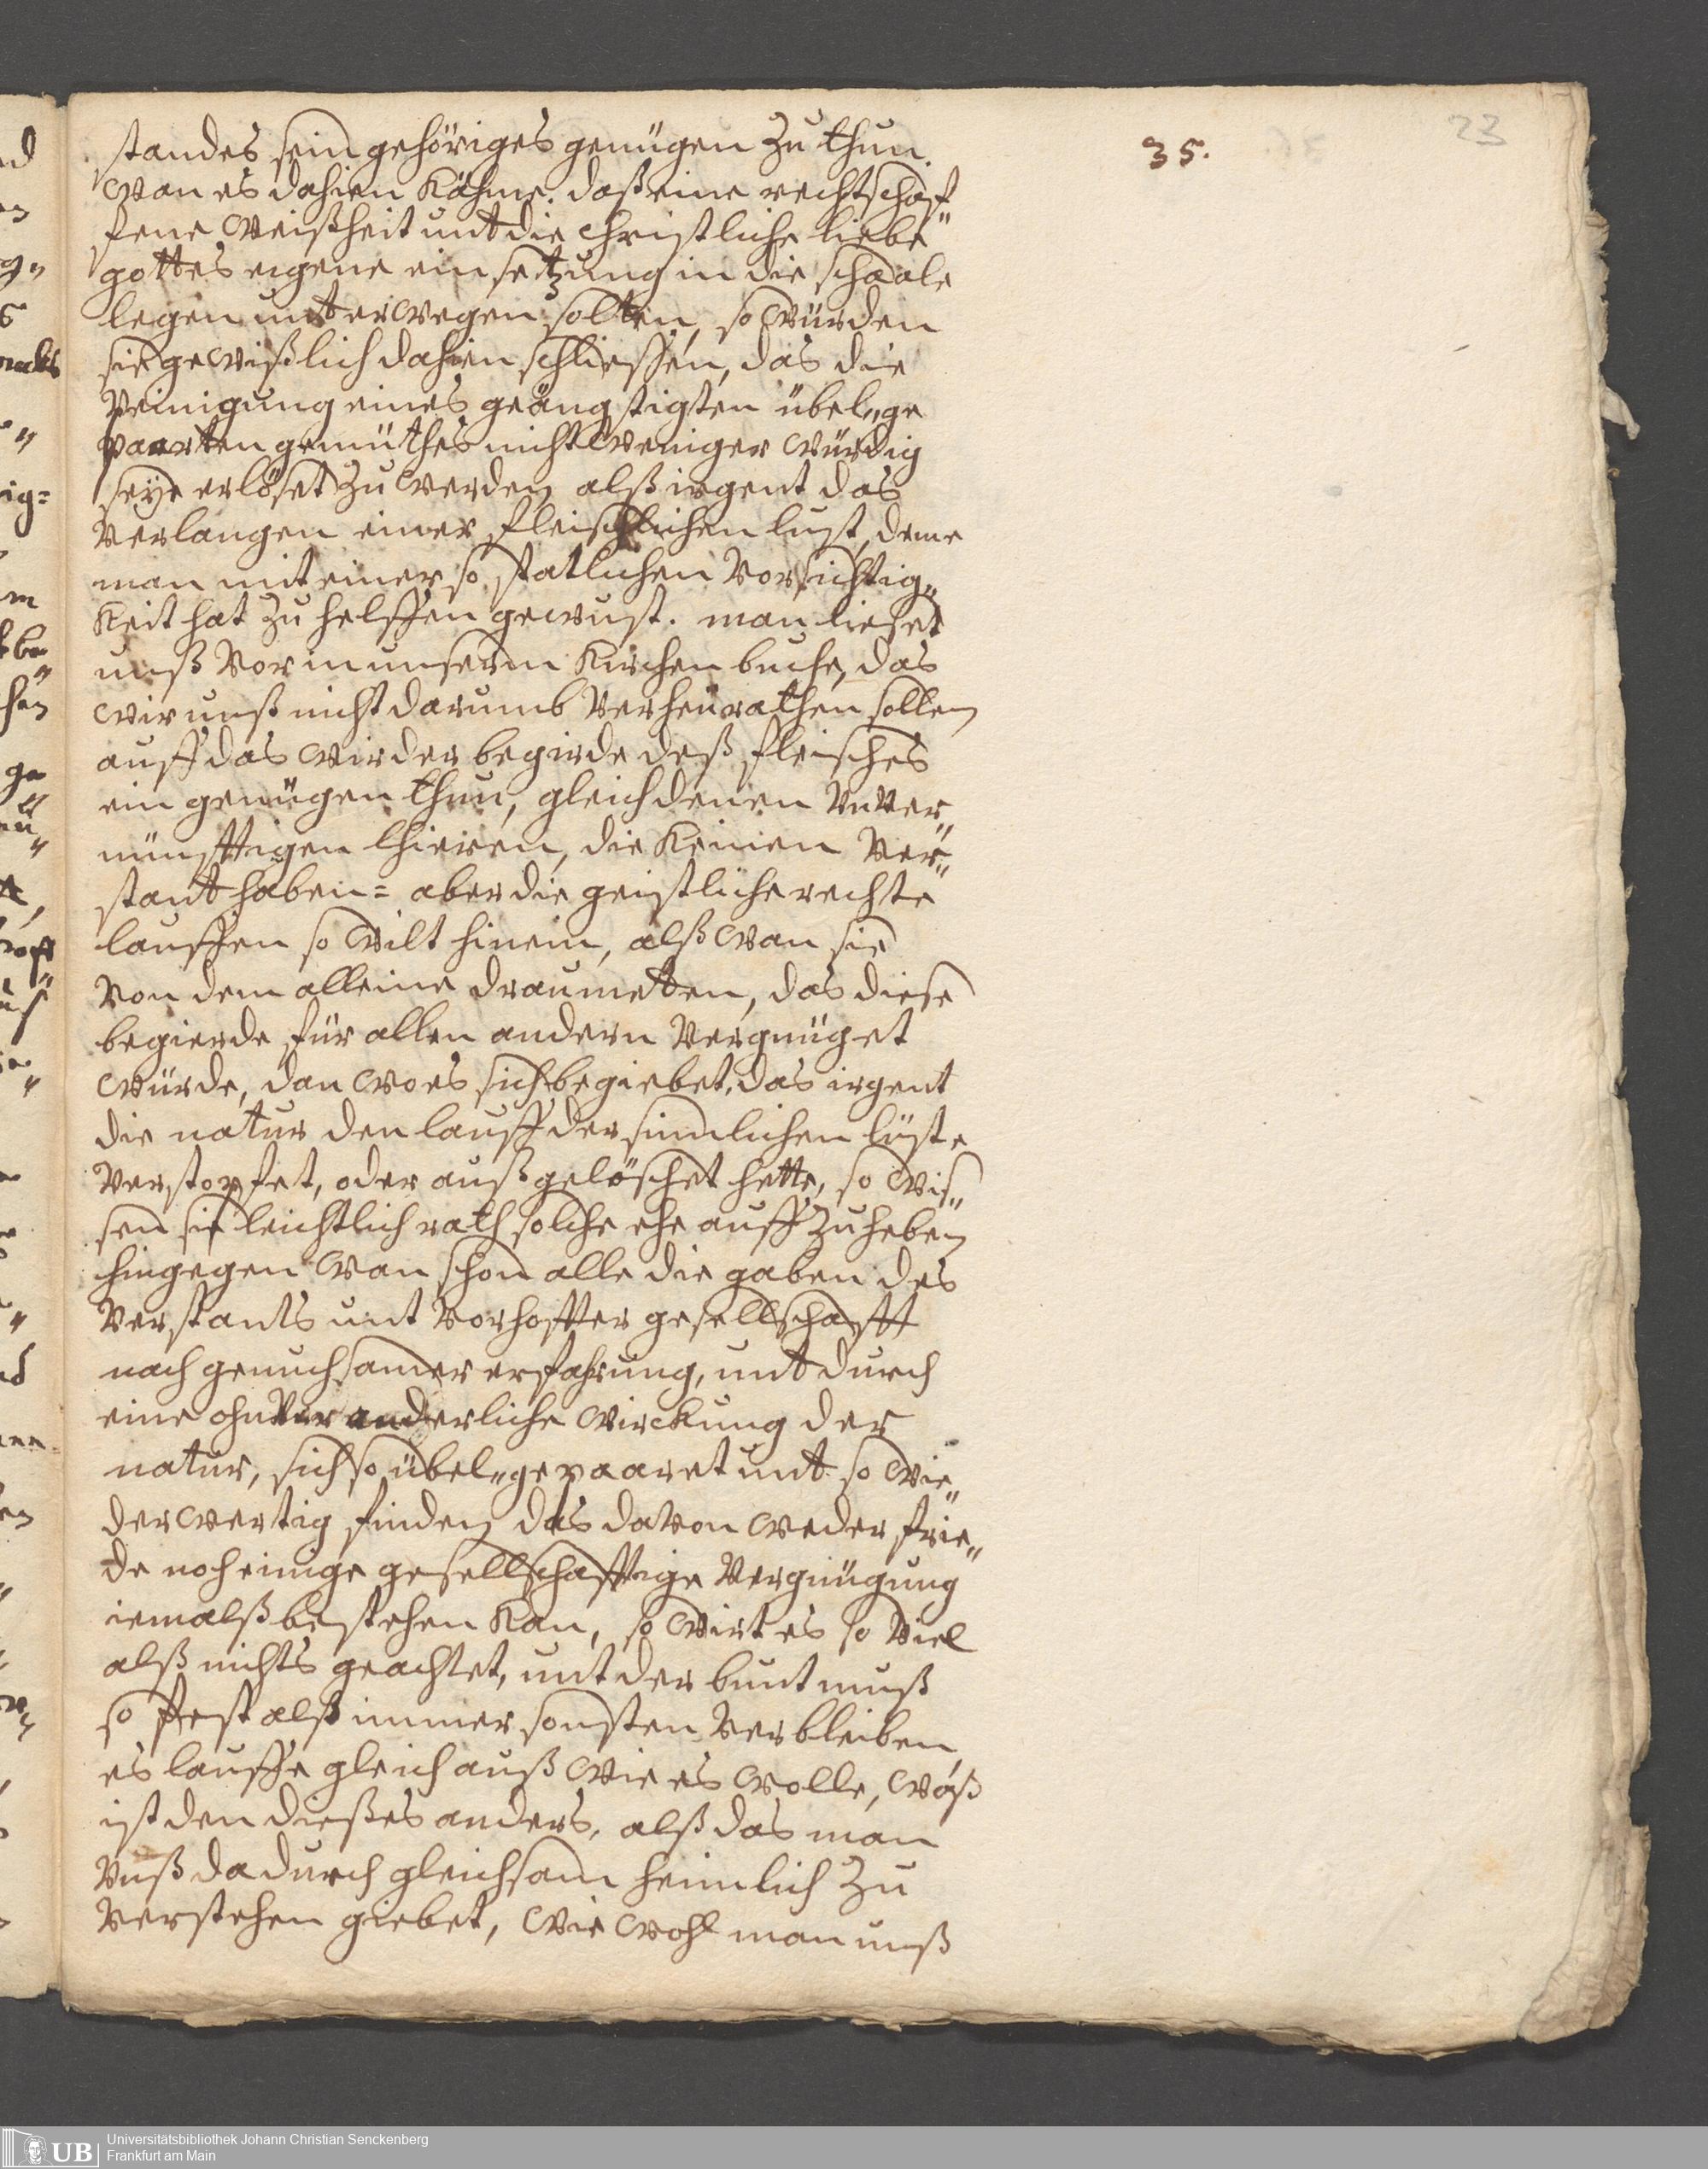 35.
23
standes sein gehöriges genügen zu thun.
wan es dahien kähme. daß eine rechtschaf„
fene weißheit unt die christliche liebe
gottes eigene ein setzung in die schaale
legen unt erwegen solten, so würden
sie gewißlich dahien schliessen, das die
peinigung eines geängstigten übel„ge
paarten gemüthes nicht weniger würdig
seye erlöset zu werden, alß irgent das
verlangen einer fleischlichen lust, deme
man mit einer so statlichen vorsichtig„
keit hat zu helffen gewust. man lieset
unß vor in unserm kirchen buche, das
wir unß nicht darumb verheurathen sollen
auff das wir der begirde deß fleisches
ein genügen thun, gleich denen unver„
nünfftigen thieren, die keinen ver„
stant haben= aber die geistliche rechte
lauffen so wilt hinein, alß wan sie
von dem alleine draumetten, das diese
begierde für allen andern vergnüget
würde, dan wo es sich begiebet, das irgent
die natur den lauff der sinnlichen lüste
verstopfet, oder außgelöschet hette, so wis„
sen sie leichtlich rath solche ehe auff zu heben
hingegen wan schon alle die gaben des
verstants unt verhoffter gesellschafft
nach genuchsamer erfahrung, unt durch
eine ohnveranderliche wirckung der
natur, sich so übel„gepaaret unt so wie„
derwertig finden, das davon weder frie„
de noch einige gesellschafftige vergnügung
iemalß bestehen kan, so wirt es so viel
alß nichts geachtet, unt der bunt muß
so fest alß immer sonsten verbleiben,
es lauffe gleich auß wie es wolle, waß
ist den dießes anders, alß das man
unß dadurch gleichsam heimlich zu
verstehen giebet, wie wohl man unß
UB
Universitätsbibliothek Johann Christian Senckenberg
Frankfurt am Main